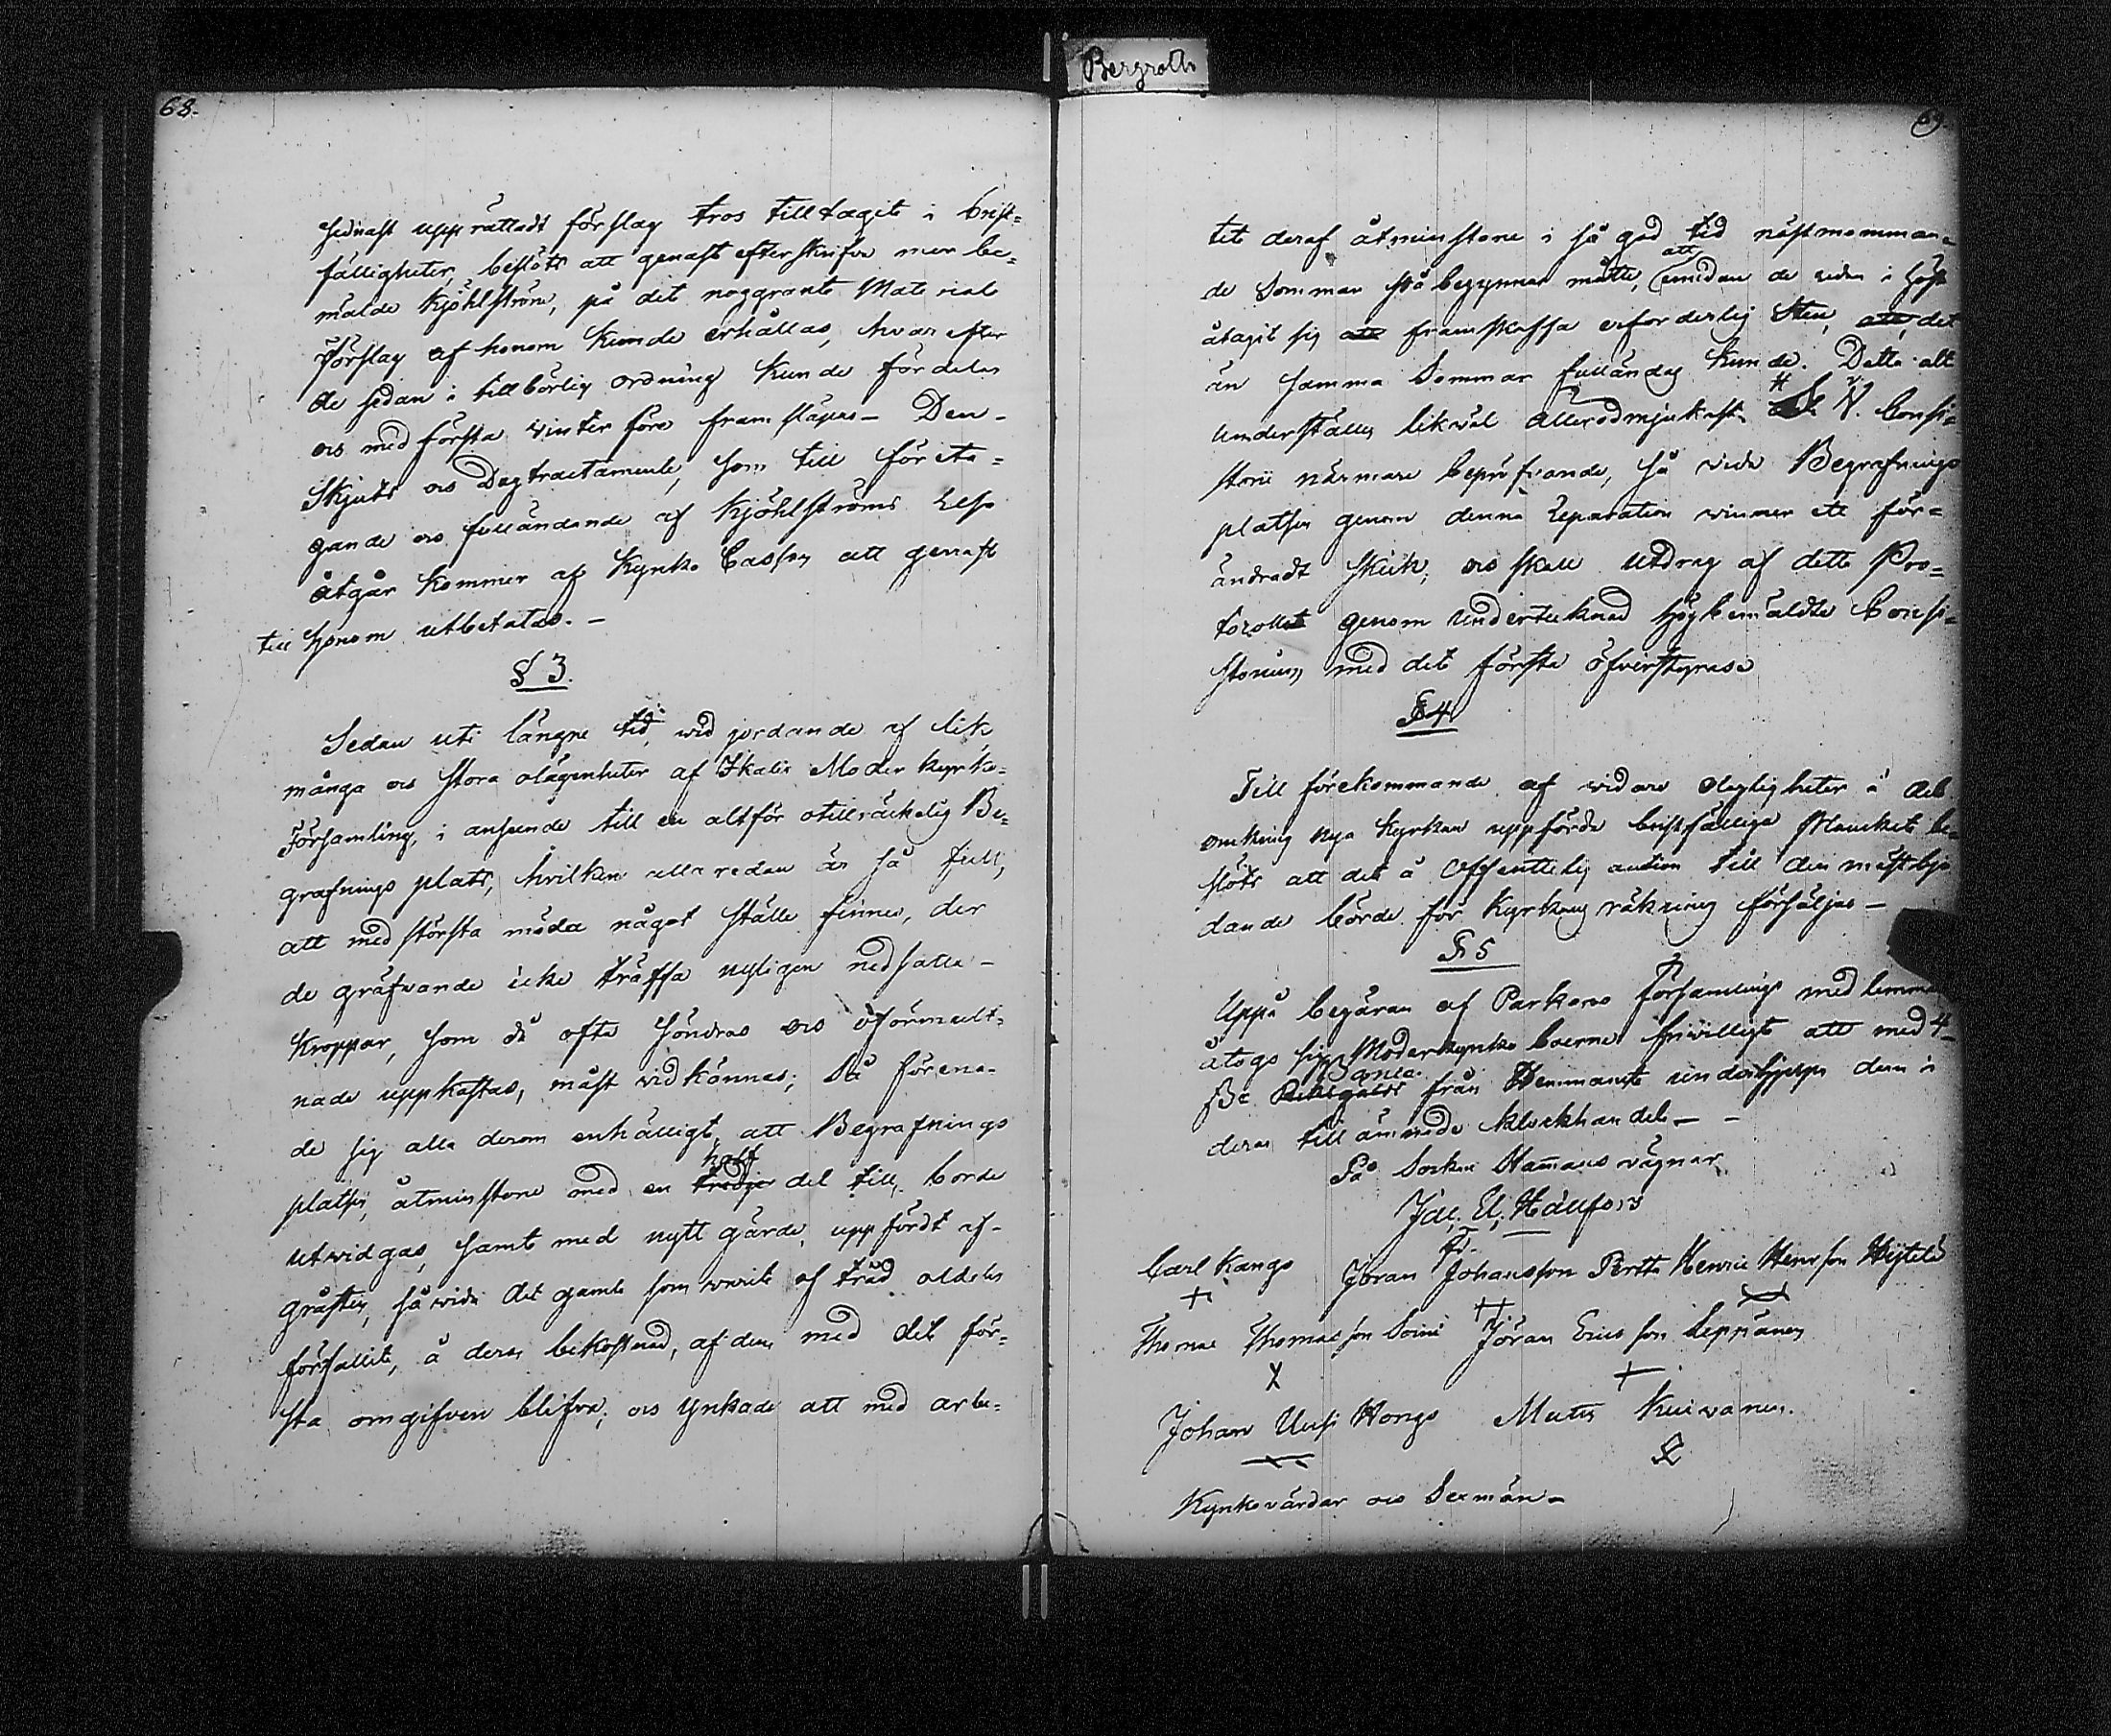 Bergroth
68.
sednast upprättadt förslag tros tilltagit i brist=
fälligheter, beslöts att genast efterskrifva mer be=
mälde Kjöhlström, på det noggrant Material
Förslag af honom kunde erhållas, hvarefter
de sedan i tillbörlig ordning kunde fördelas
ock med första vinterföre framsläpas – Den –
Skjuts ock Dagtractamente, som till företa=
gande ock fulländande af Kjöhlströms Resa
åtgår kommer af Kyrko Cassan att genast
till honom utbetalas. –
§ 3.
Sedan uti längre tid, wid jordande af lik
många ock stora olägenheter af Ikalis Moder Kyrko=
Församling, i anseende till en altför otillräckelig Be=
grafnings plats, hvilken allaredan är så full,
att med största möda något ställe finnes, der
de gräfvande icke träffa nyligen nedsatta –
Kroppar, som då ofta söndras ock oförmult=
nade uppkastas, måst vidkännas; Så förena=
de sig alla derom enhälligt, att Begrafnings
platsen, åtminstone med en tredje half del till, borde
utwidgas, samt med nytt gärde, uppfördt af –
gråsten, så wida det gamla som warit af träd aldeles
förfallit, å deras bekostnad, af dem med det för=
sta omgifven blifva; ock ynkade att med arbe=
69.
tet deraf åtminstone i så god tid nästkomman=
de Sommar få begynnas måtte, att emedan de redan i höst
åtagit sig att framskaffa erforderlig Sten, att det
än samma Sommar fulländas kunde. Detta alt
underställes likväl allerödmjukast V. Consi=
storii närmare bepröfvande, så wida Begrafnings
platsen genom denna Reparation winner ett för=
ändradt skick, ock skall utdrag af detta Pro=
tocollet genom undertecknad högbemäldte Consi=
storium med det första öfverstyras
§ 4
Till förekommande af widare oligligheter å det
omkring nya Kyrkan uppförda bristfälliga Plancket be=
slöts att det å Offentlig auction till den mästbju
dande borde för Kyrkans räkning försäljas –
§ 5
Uppå begäran af Parkano församlings medlemmar
åtogo sig Moderkyrko boerne friwilligt att med 4
Riksgälds Banco från Hemmanet underhjelpa dem i
deras tillämnade klockhandel – –
På Socken Stämmans vägnar
Jac. U. Hällfors
Carl Kangs
Jöran Johansson Pertto
Henric Henrsson
Thomas Thomasson Soini
Jöran Ericsson Leppänen
Johan Uusi Hongo
Matts Kuiwanen.
Kyrkovärdar ock Sexmän –